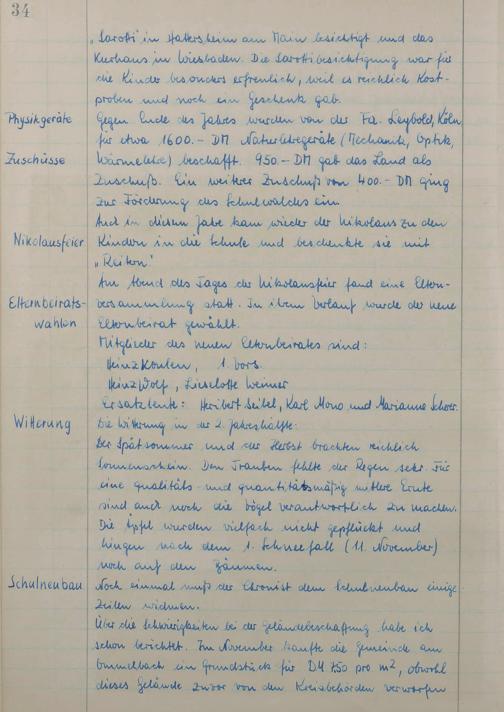 34
„Sarotti" in Hattersheim am Main besichtigt und das
Kurhaus in Wiesbaden. Die Sarottibesichtigung war für
die Kinder besonders erfreulich, weil es reichlich Kost-
proben und noch ein Geschenk gab.
Physikgeräte
Gegen Ende des Jahres wurden von der Fa. Leybold, Köln
für etwa 1600.- DM Naturlehregeräte (Mechanik, Optik,
Zuschüsse
Wärmelehre) beschafft. 950.- DM gab das Land als
Zuschuß. Ein weiterer Zuschuß von 400.- DM ging
zur Förderung des Schulwaldes ein.
Auch in diesem Jahr kam wieder der Nikolaus zu den
Nikolausfeier
Kindern in die Schule und beschenkte sie mit
„Reitern."
Am Abend des Tages der Nikolausfeier fand eine Eltern-
Elternbeirats-
wahlen
versammlung statt. In ihrem Verlauf wurde der neue
Elternbeirat gewählt.
Mitglieder des neuen Elternbeirates sind:
Heinz 1. Vors.
Heinz Wolf, Lieselotte Werner
Ersatzleute: Heribert Seibel, Karl und Marianne
Witterung
Die Witterung in der 2. Jahreshälfte:
Der Spätsommer und der Herbst brachten reichlich
Sonnenschein. Den Trauben fehlte der Regen sehr. Für
eine qualitäts- und quantitätsmäßig mittlere Ernte
sind auch noch die Vögel verantwortlich zu machen.
Die Äpfel wurden vielfach nicht gepflückt und
hingen nach dem 1. Schneefall (11. November)
noch auf den Bäumen.
Schulneubau
Noch einmal muß der Chronist dem Schulneubau einige
Zeilen widmen.
Über die Schwierigkeiten bei der Geländebeschaffung habe ich
schon berichtet. Im November kaufte die Gemeinde am
ein Grundstück für DM 7.50 pro m², obwohl
dieses Gelände zuvor von den Kreisbehörden verworfen